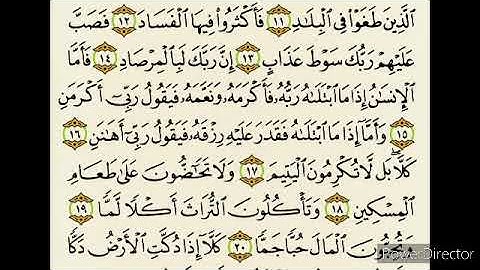 ٱلَّذِينَ طَغَوْا۟ فِى ٱلْبِلَٰدِ ١١ فَأَكْثَرُوا۟ فِيهَا ٱلْفَسَادَ ١٢ فَصَبَّ
عَلَيْهِمْ رَبُّكَ سَوْطَ عَذَابٍ ١٣ إِنَّ رَبَّكَ لَبِٱلْمِرْصَادِ ١٤ فَأَمَّا
ٱلْإِنسَٰنُ إِذَا مَا ٱبْتَلَىٰهُ رَبُّهُۥ فَأَكْرَمَهُۥ وَنَعَّمَهُۥ فَيَقُولُ رَبِّىٓ أَكْرَمَنِ
١٥ وَأَمَّآ إِذَا مَا ٱبْتَلَىٰهُ فَقَدَرَ عَلَيْهِ رِزْقَهُۥ فَيَقُولُ رَبِّىٓ أَهَٰنَنِ ١٦
كَلَّا ۖ بَل لَّا تُكْرِمُونَ ٱلْيَتِيمَ ١٧ وَلَا تَحَٰٓضُّونَ عَلَىٰ طَعَامِ
ٱلْمِسْكِينِ ١٨ وَتَأْكُلُونَ ٱلتُّرَاثَ أَكْلًا لَّمًّا ١٩
وَتُحِبُّونَ ٱلْمَالَ حُبًّا جَمًّا ٢٠ كَلَّآ إِذَا دُكَّتِ ٱلْأَرْضُ دَكًّا
PowerDirector